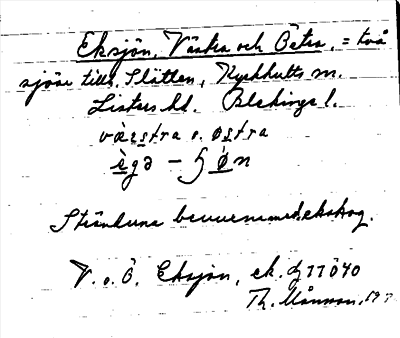 Eksjön, Västra och Östra, = två
sjöar till Slätten, Kyrkhults sn.
Listers hd. Blekinge l.
væstra o. østra
ègə – ʃø̀n
Stränderna bevuxna med ekskog.
V. o. Ö. Eksjön, ek. bl 77040
Th. Månsson, 19